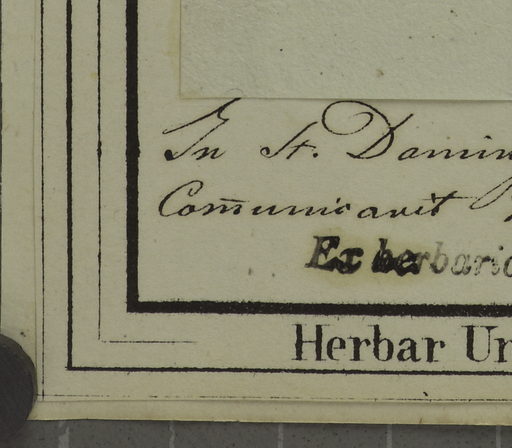 In St. Domin
Com̄unicavit
Ex herbario
Herbar Un